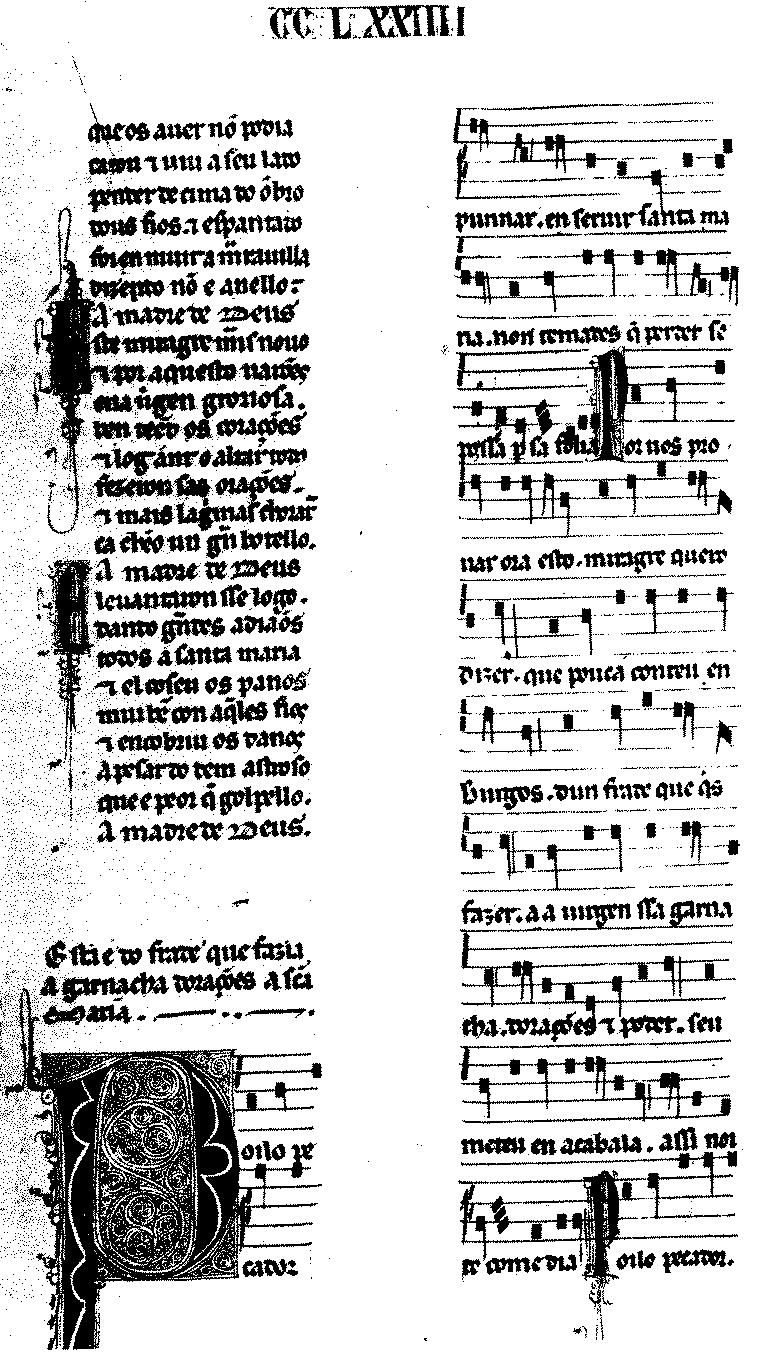 CC LXXIIII
que os auer nõ podia
catou ⁊ uiu a seu lado
pender de cima do õbro
dous fios. ⁊ espantado
foi en muit a marauilla
A madre de Deus
este miragre mis nouo
⁊ por aquesto
groriosa.
os corações
⁊ logo ant o altar todo
fezeron sas orações.
⁊ mais lagrimas chorar
ca chẽo un gran botello.
A madre de Deus
leuantaron sse logo.
dando graças a dios
todos a santa maria
⁊ el coseu os panos
mui bẽ con aqles fios
⁊ encobriu os
A pesar do dem astroso
que e peor q golpello.
A madre de Deus.
Esta e do frade que fazia
A garnacha dorações a sca
Maria.
Poilo pe
cador
punnar. en seruir santa ma
ria. non temades q perder se
possa p sa folia Por nos pro
uar ora esto. miragre quero
dizer. que pouca conteu en
Burgos. dun frade que qs
fazer. a a uirgen ssa garna
cha. dorações ⁊ poder. seu
meteu en acabala. assi noi
te come dia Poilo pecador.